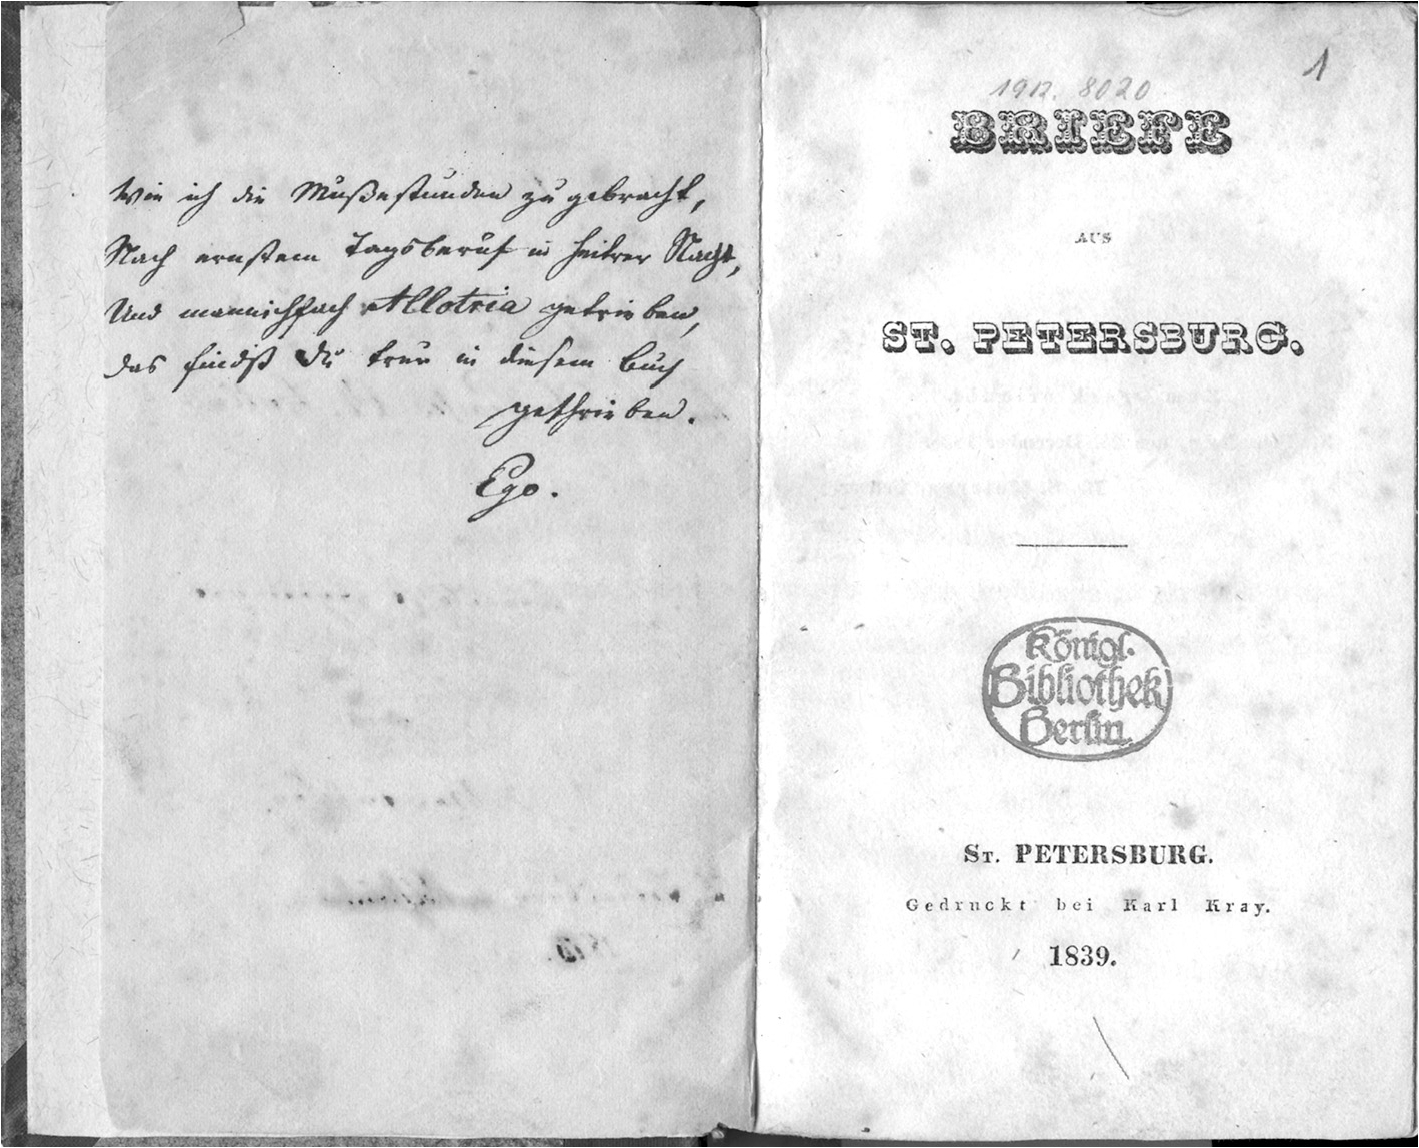 Wie ich die Mußestunden zugebracht,
Nach ernstem Tagsberuf in heitrer Nacht,
Und mannichfach Allotria getrieben,
das findst Du treu in diesem Buch
geschrieben.
Ego.
1
1912. 8020
BRIEFE
AUS
ST. PETERSBURG.
Königl.
Bibliothek
Berlin
ST. PETERSBURG.
Gedruckt bei Karl Kray.
1839.